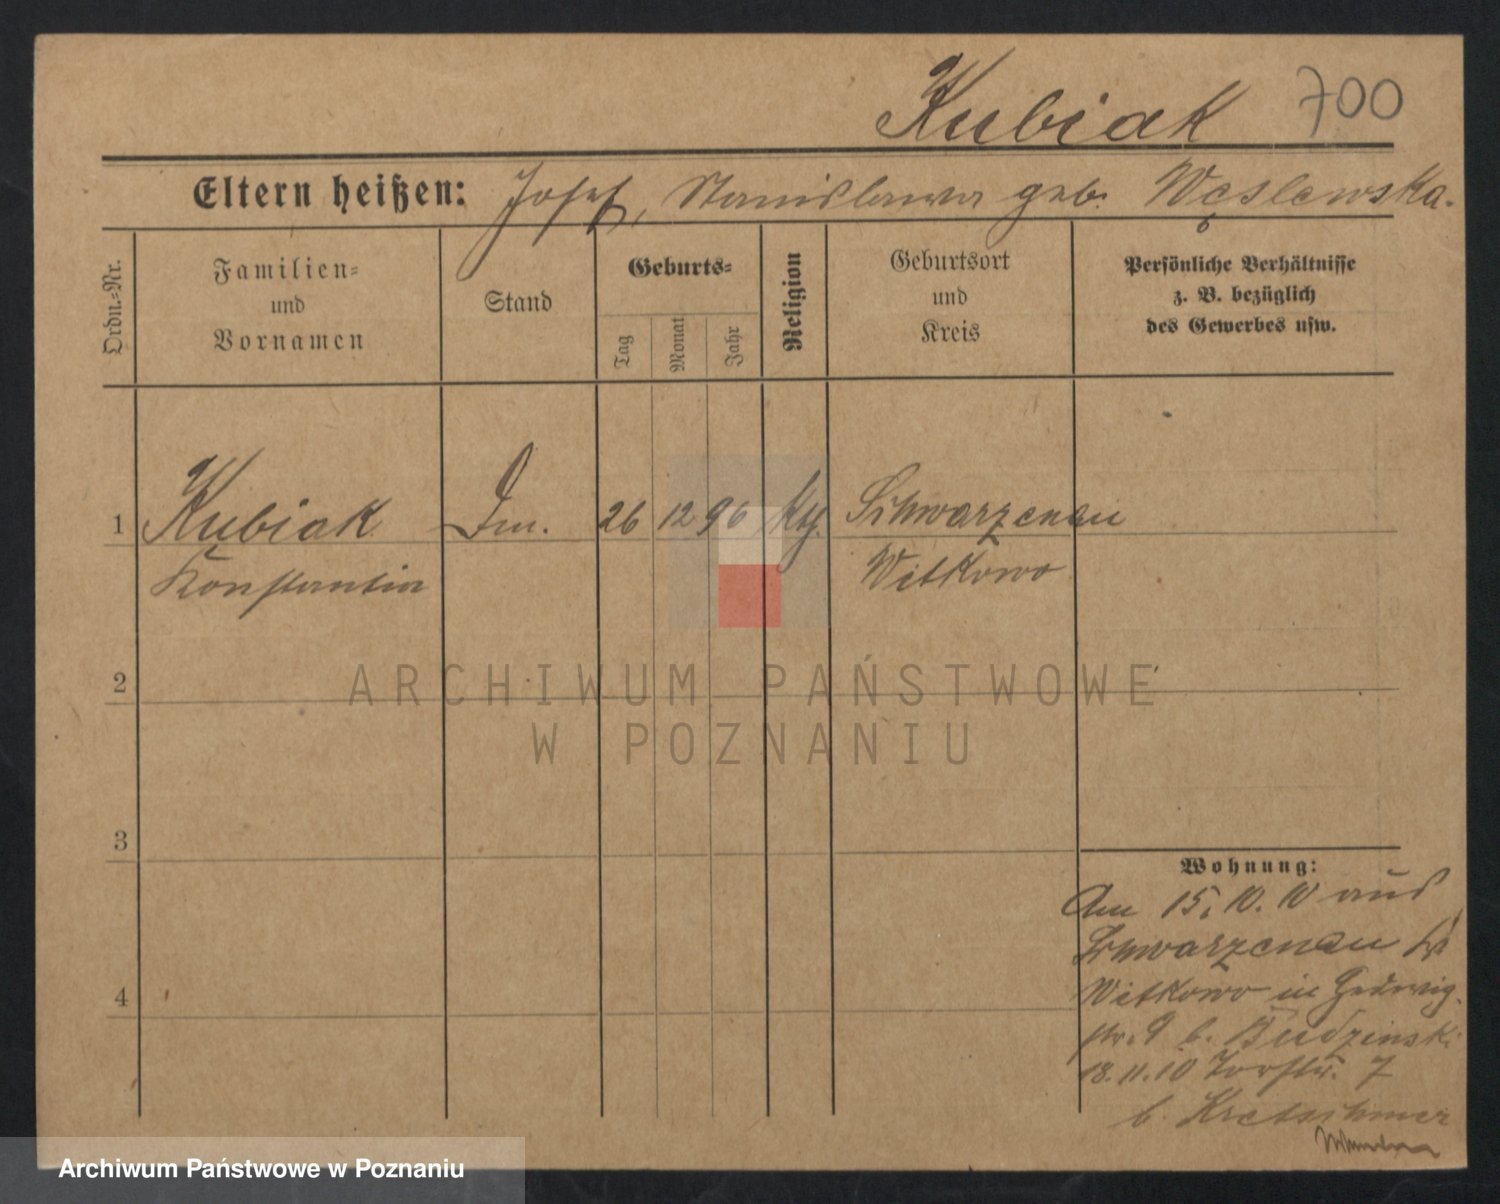 Kubiak 700
Eltern heißen: Josef, Stanislawa geb. Węslewska.
Ordn.-Nr.
Familien-
und
Vornamen
Stand
Geburts-
Tag
Monat
Jahr
Religion
Geburtsort
und
Kreis
Persönliche Verhältnisse
z. B. bezüglich
des Gewerbes usw.
1 Kubiak 26 12 96 kth. Schwarzenau
Konstantin Witkowo
2
3
4
Wohnung:
Am 15. 10. 10 aus
Schwarzenau
Witkowo in Hedwig-
str. 9 b. Budzinski
18.11.10 Torstr. 7
b. Kretschmer
ARCHIWUM PAŃSTWOWE
W POZNANIU
Archiwum Państwowe w Poznaniu